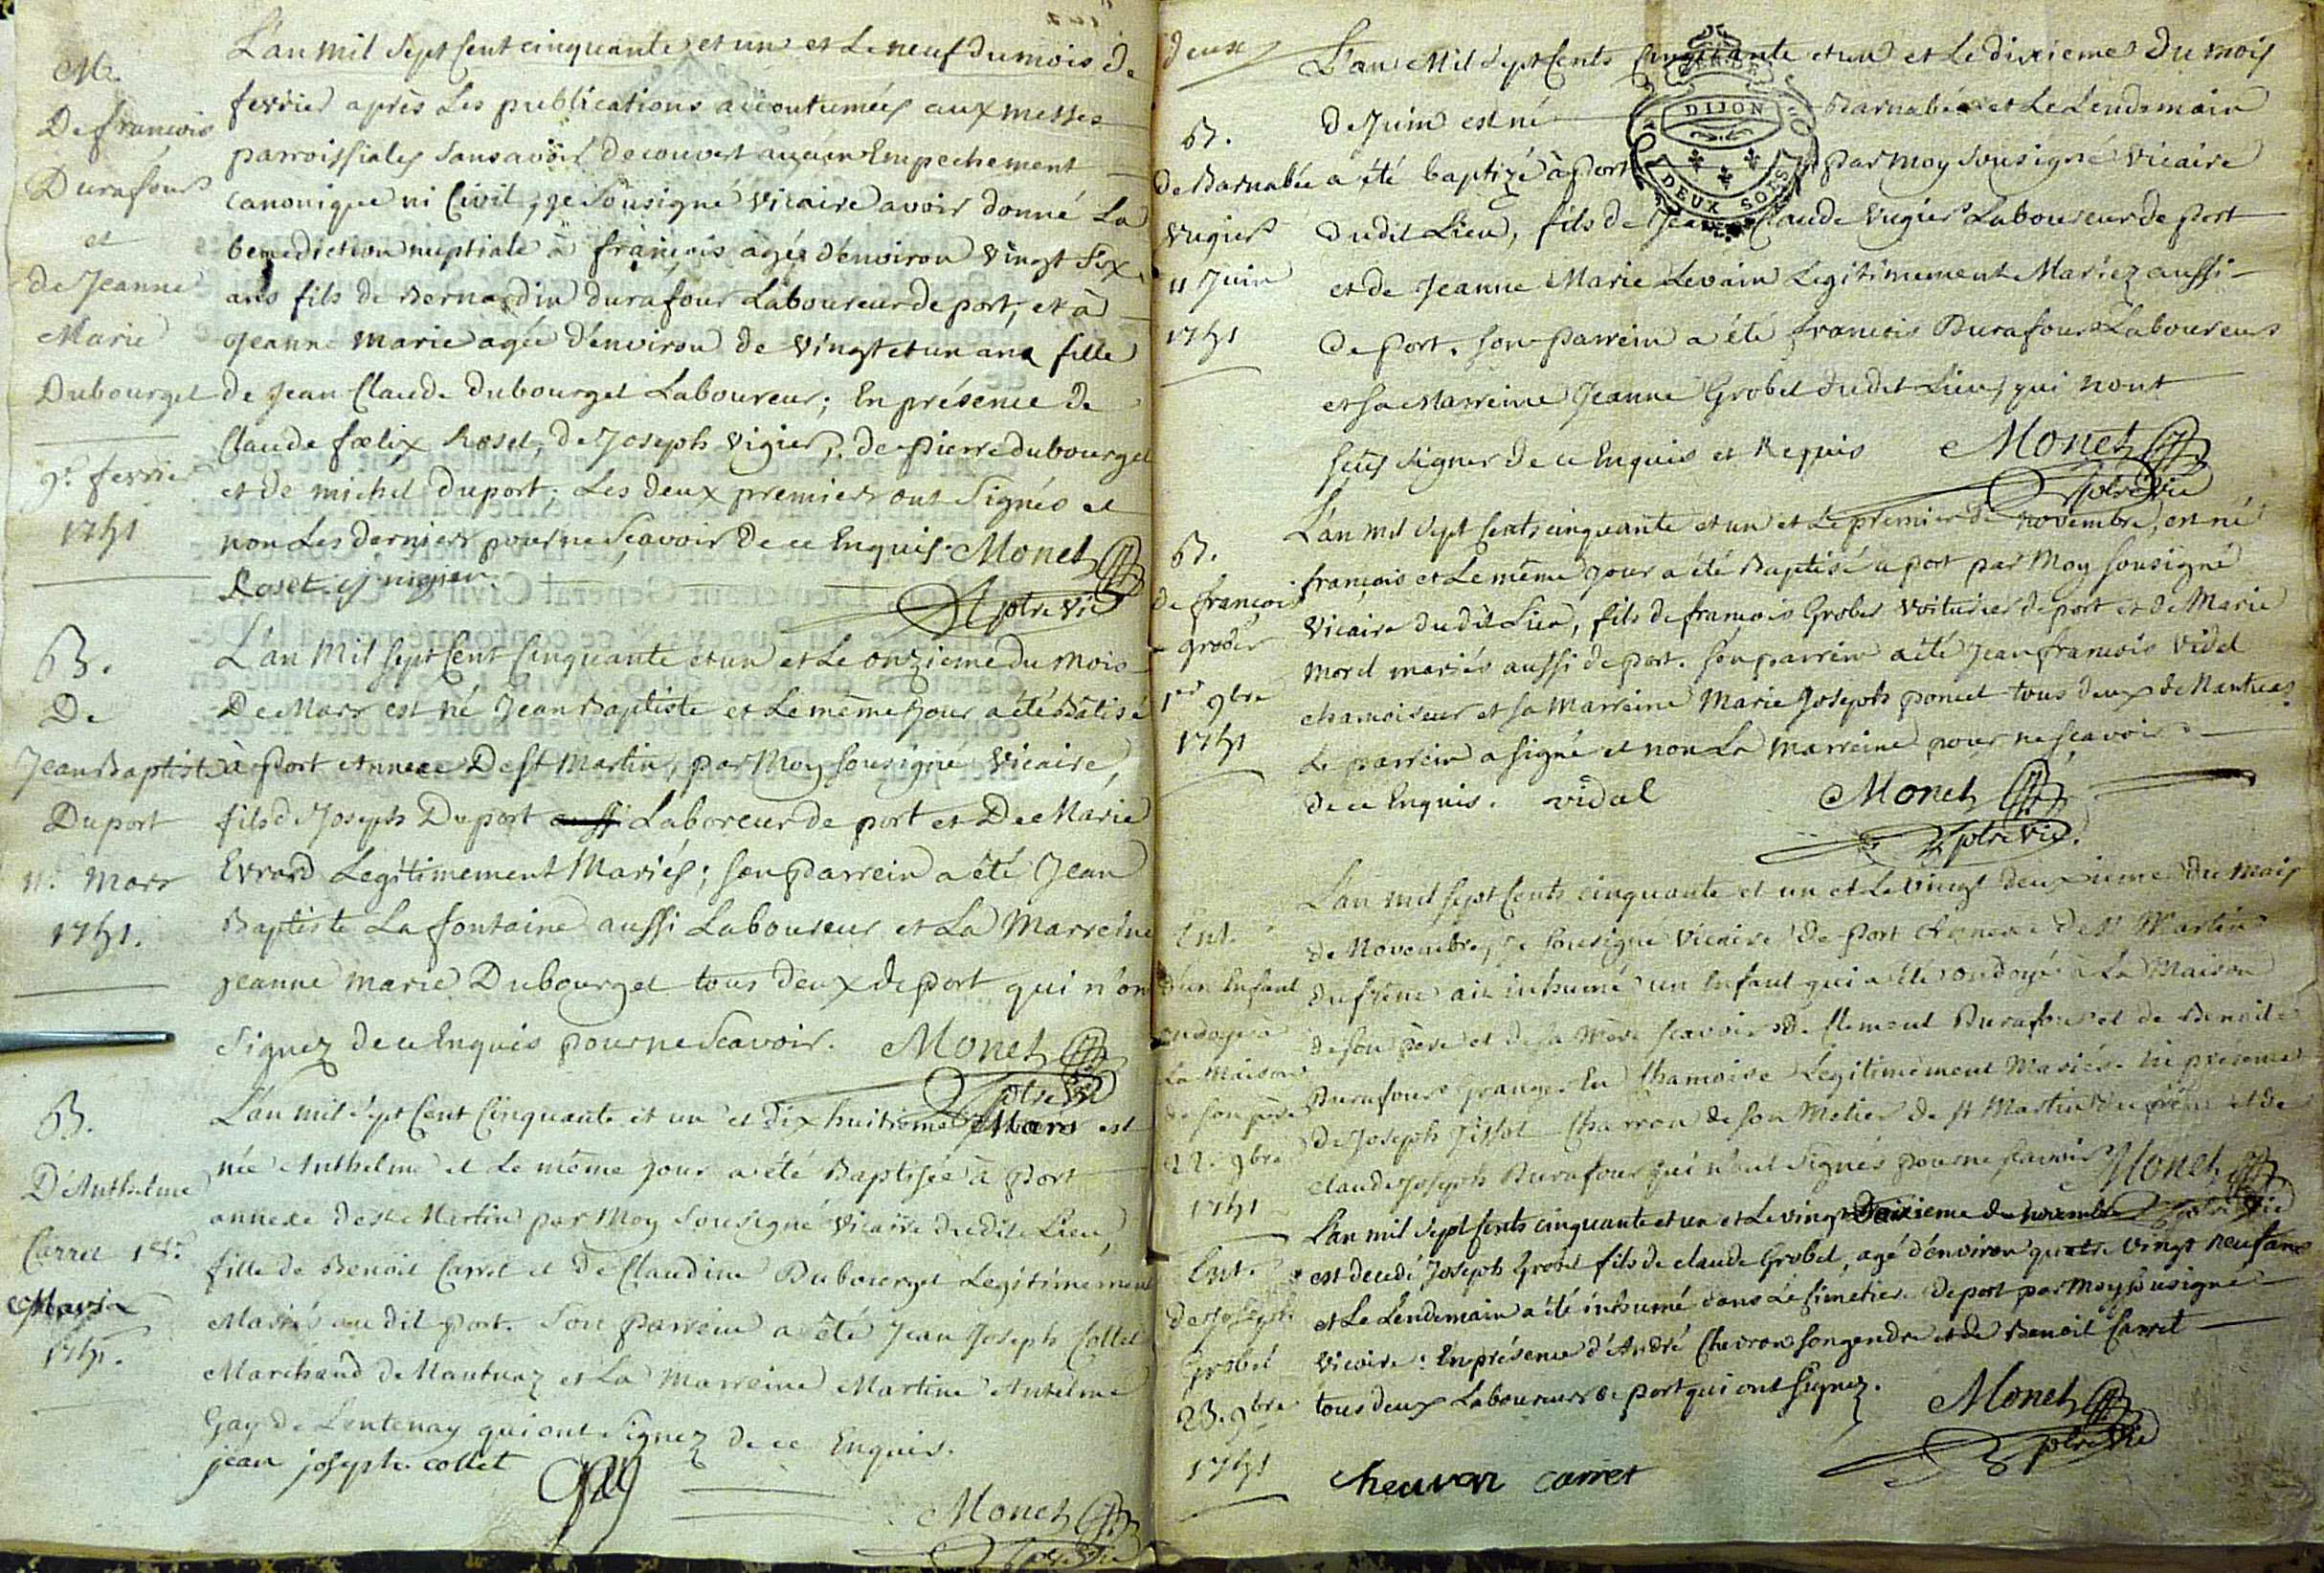 M.
De françois
Durafour
et
de Jeanne
Marie
Dubourget
9.e fevrier
1751
L'an mil sept Cent cinquante et un et Le neuf du mois de
fevrier après Les publications accoutumées aux messes
parroissiales sans avoir decouvert aucun Empechement
canonique ni Civil, je sousigné vicaire avoir donné La
benediction nuptiale à françois agée d'environ vingt six
ans fils de Bernardin durafour Laboureur de port, et à
Jeanne marie agée d'environ de vingt et un ans fille
de Jean Claude dubourget Laboureur; En présence de
Claude fœlix Roset, de Joseph vigier, de pierre dubourget
et de michel duport; Les deux premiers ont Signés et
non Les derniers pour ne Scavoir De ce Enquis. Monet
Roset vigier ptre vic
B.
De
Jean Baptiste
Duport
11.e Mars
1751.
L'an Mil sept Cent Cinquante et un et Le onzieme du mois
De Mars est né Jean Baptiste et Le même jour a été Batisé
à port Annexe De St Martin, par Moy sousigné Vicaire,
fils de Joseph Duport aussi Laboreur de port et De Marie
Evrard Legitimement Mariés; son parrein a été Jean
Baptiste La fontaine aussi Laboureur et La Marreine
jeanne marie Dubourget tous deux de port qui n'ont
Signez de ce Enquis pour ne Scavoir. Monet
ptre vic
B.
D'Anthelme
Carret 18.e
Mars
1751.
L'an mil sept Cent Cinquante et un et dix huitieme Mars est
née Anthelme et Le même jour a été Baptisée à Port
annexe de St Martin par Moy Sousigné Vicaire dudit Lieu,
fille de Benoit Carret et De Claudine Dubourget Legitimement
Mariés au dit port. Son parrein a été Jean Joseph Collet
Marchand de Nantuaz et La Marreine Martine Antelme
Gay de Lentenay qui ont Signez de ce Enquis.
jean joseph collet gay
Monet
ptre vic
deux
B.
de Barnabée
vugier
11 Juin
1751
L'an Mil Sept Cents Cinquante et un et Le dixieme Du mois
de Juin est né Barnabée et Le Lendemain
a été baptizé à Port par moy sousigné vicaire
dudit Lieu, fils de Jean Claude vugier Laboureur de port
et de Jeanne Marie Levain Legitimement Mariez aussi
de port. son parrein a été francois Durafour Laboureur
et sa Marreine Jeanne Grobet dudit Lieu, qui nont
sçus signer de ce Enquis et Requis Monet
ptre vic
DIJON
DEUX SOLS
B.
de françois
grober
1er 9bre
1751
L'an mil sept Cents cinquante et un et Le premier de novembre, est né
françois et Le même jour a été Baptisé à port par Moy sousigné
vicaire dudit Lieu, fils de françois Grober voiturier de port et de Marie
Morel mariés aussi de port. son parrein a été Jean francois Vidal
chamoiseur et sa Marreine Marie Joseph poncet tous deux de Nantuas.
Le parrein a signé et non La marreine pour ne scavoir
de ce Enquis. vidal Monet
ptre vic.
Ent.
d'un Enfant
ondoyé à
La maison
de son père
22. 9bre
1751
L'an mil sept Cents cinquante et un et Le vingt deuxieme du mois
de Novembre, je sousigné vicaire de port Annexe de St Martin
du frêne ait inhumé un Enfant qui a été ondoyé à La Maison
de son père et de sa Mère scavoir de Clement Durafour et de Benoite
Durafour Granger En Chamoise Legitimement Mariés. En présence
de Joseph Tissot Charron de son Metier de St Martin du frêne et de
claude Joseph Durafour qui n'ont Signés pour ne scavoir Monet
ptre vic
Ent.
de Joseph
Grobet
23. 9bre
1751
L'an mil sept Cents cinquante et un et Le vingt deuxieme de novembre
est decedé Joseph Grobet fils de claude Grobet, agé d'environ quatre vingt neuf ans
et Le Lendemain a été inhumé dans Le simetier de port par Moy sousigné
vicaire: En présence d'André Chevron son gendre et de Benoit Carret
tous deux Laboureurs de port qui ont signez. Monet
ptre vic
cheuvron carret